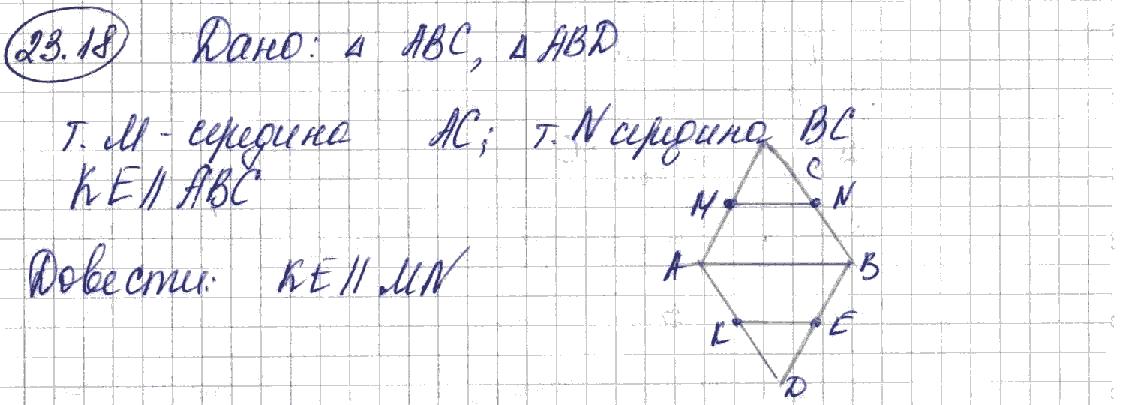 23.18 Дано: Δ ABC, Δ ABD
т. M - середина AC; т. N середина BC
KE || ABC
C
M N
Довести: KE || MN
A B
K E
D